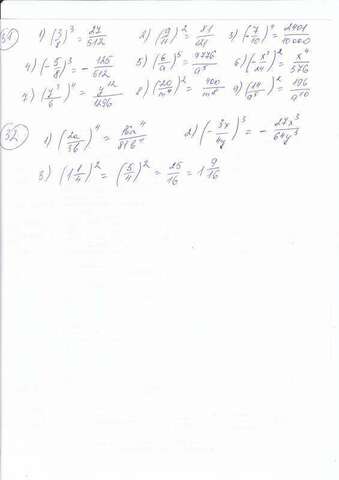 31 1) (3/8)^3 = 27/512 2) (9/11)^2 = 81/121 3) (-7/10)^4 = 2401/10000
4) (-5/8)^3 = -125/512 5) (6/a)^5 = 7776/a^5 6) (-x^2/24)^2 = x^4/576
7) (y^3/6)^4 = y^12/1296 8) (20/m^4)^2 = 400/m^8 9) (14/a^5)^2 = 196/a^10
32 1) (2a/3b)^4 = 16a^4/81b^4 2) (-3x/4y)^3 = -27x^3/64y^3
3) (1 1/4)^2 = (5/4)^2 = 25/16 = 1 9/16